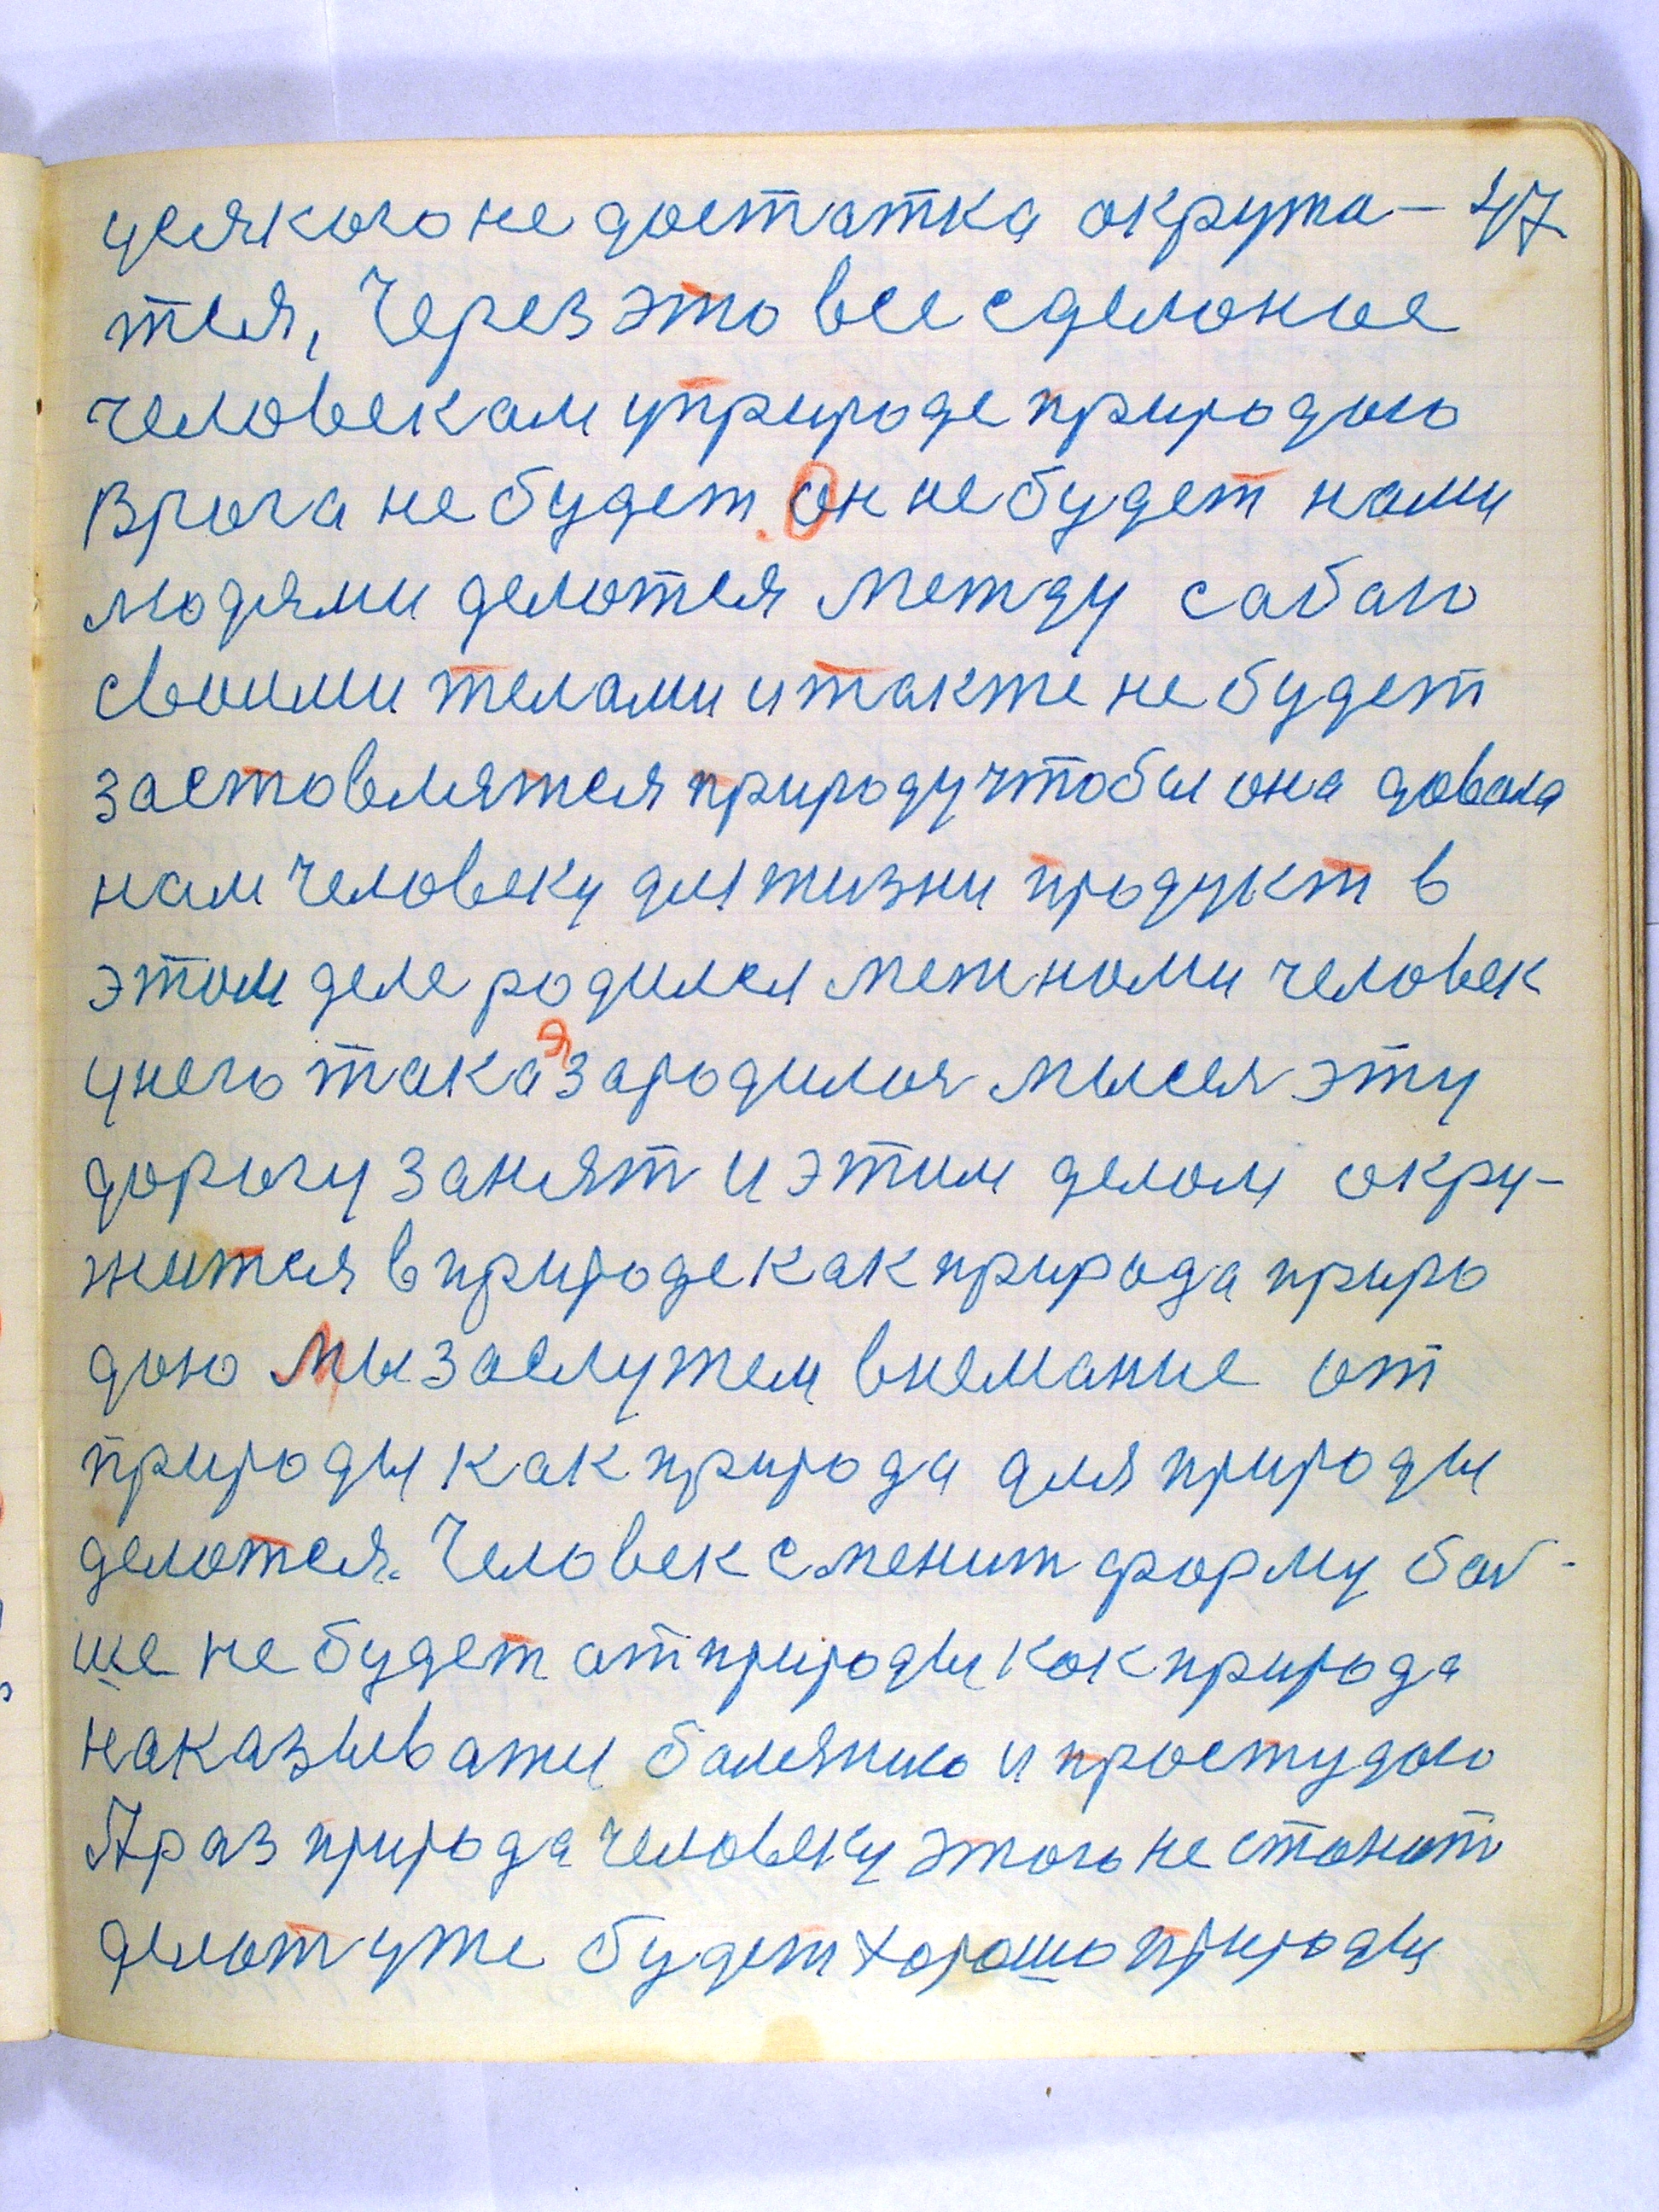 усякого не достатка окружа- 47
тся, Через это все сделоные
человекам уприроде природою
Врага не будет. Он не будет нами
людями делотся между сабаю
своими телами итакже не будет
заставлятся природу чтобы она довала
нам человеку для жизни продукт в
этом деле родился меж нами человек
унего такая зародилоя мысля эту
дорогу занят и этим делом окру-
жится вприроде как природа приро
дою Мы заслужем внемание от
природы как природа для природы
делотся. Человек сменит форму бол-
ше не будет атприроды как природа
наказыват болячкою и простудою
А раз природа человеку этого не станит
делот уже будет хорошо природы